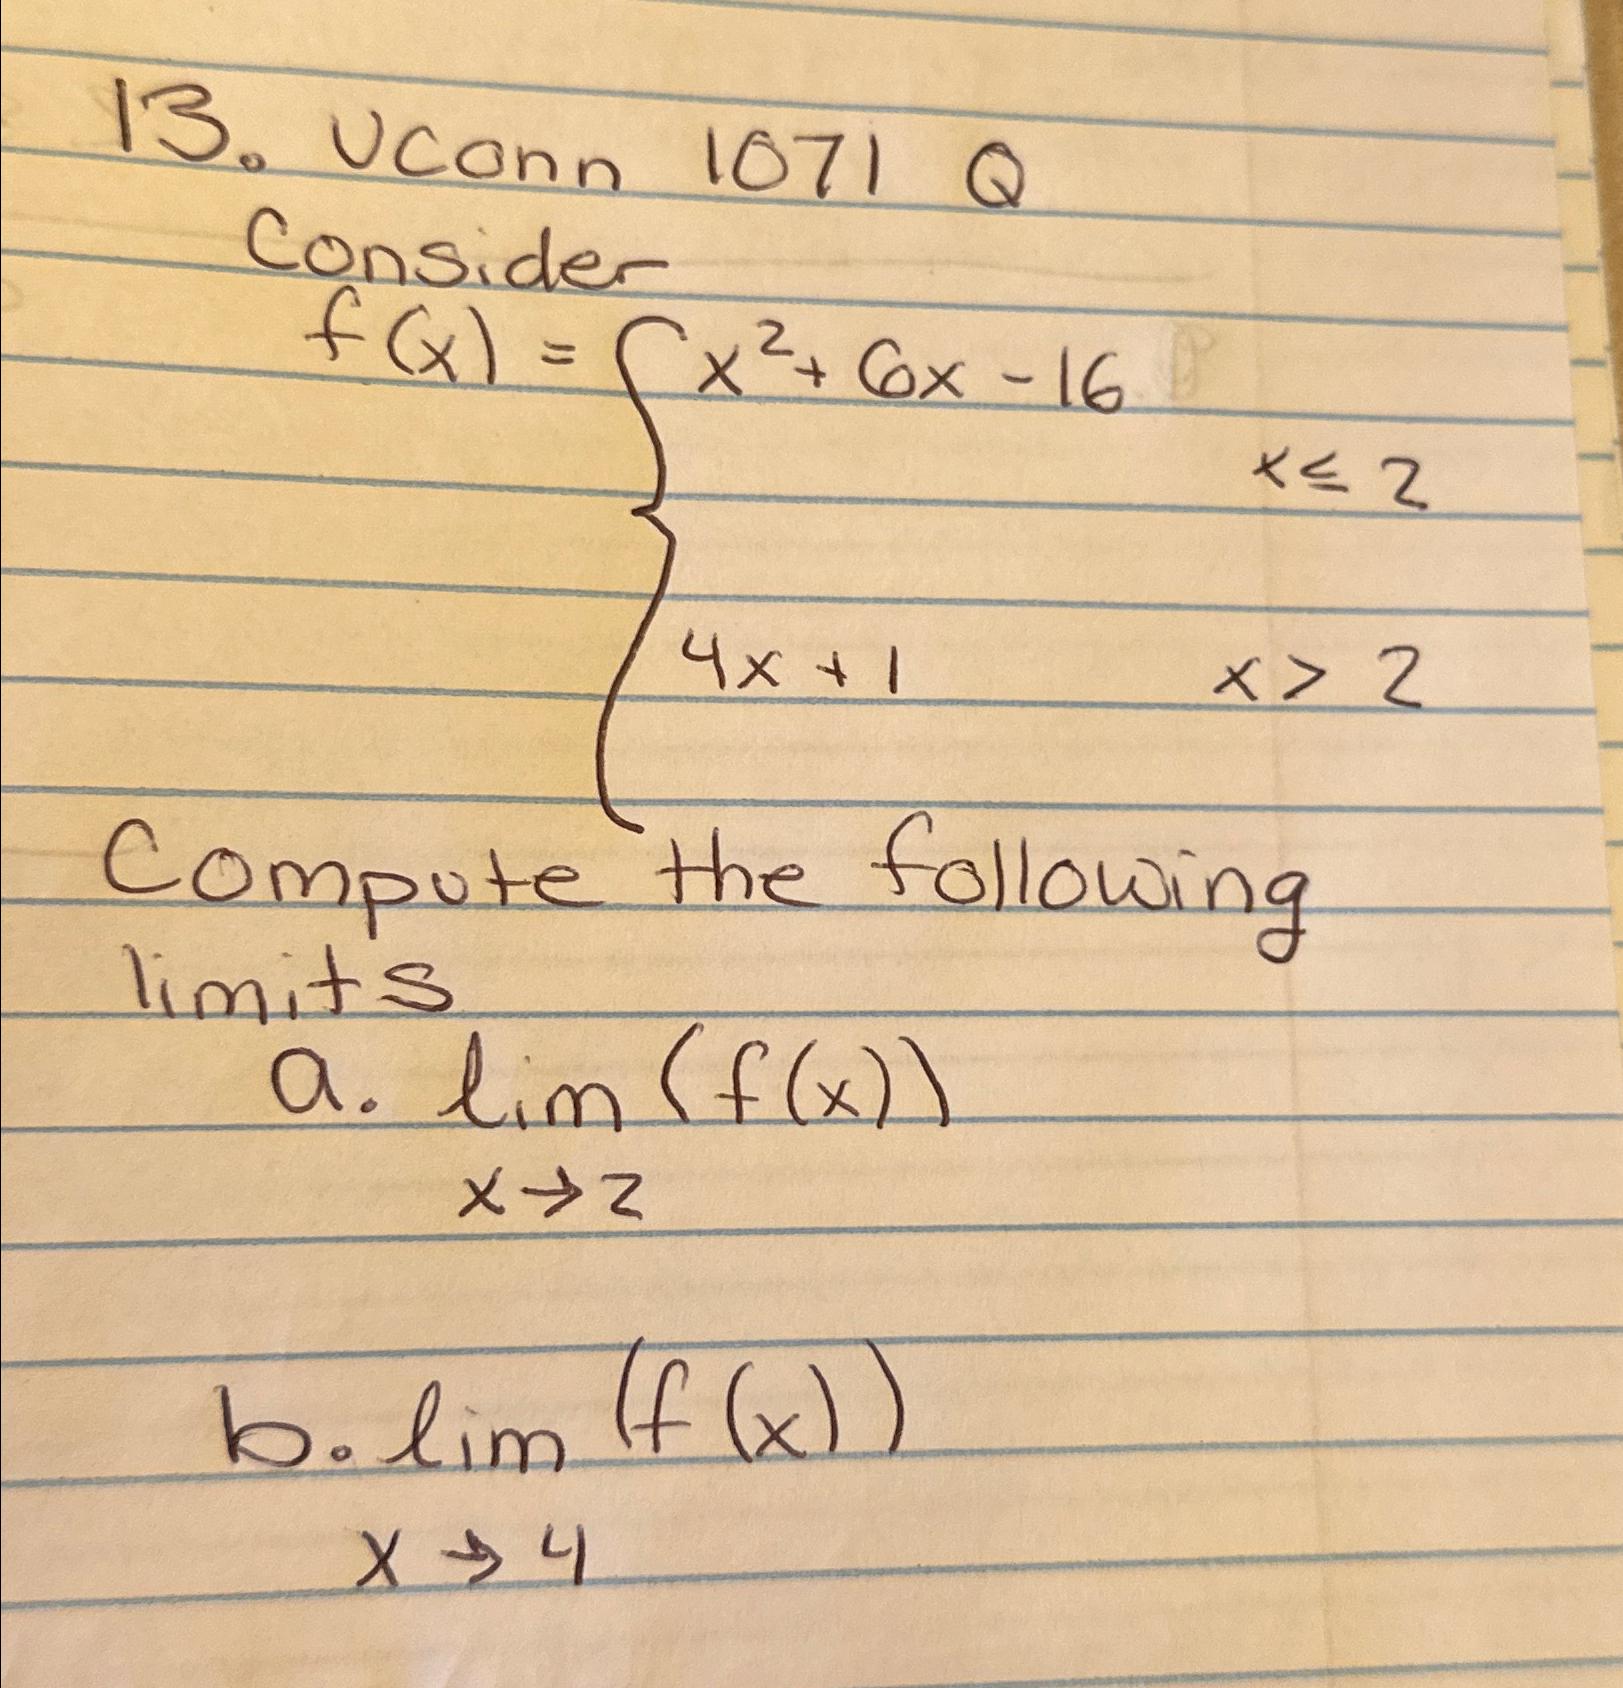 13. UConn 1071 Q
Consider
f(x) = { x² + 6x - 16
x ≤ 2
4x + 1 x > 2
Compute the following
limits
a. lim (f(x))
x → 2
b. lim (f(x))
x → 4